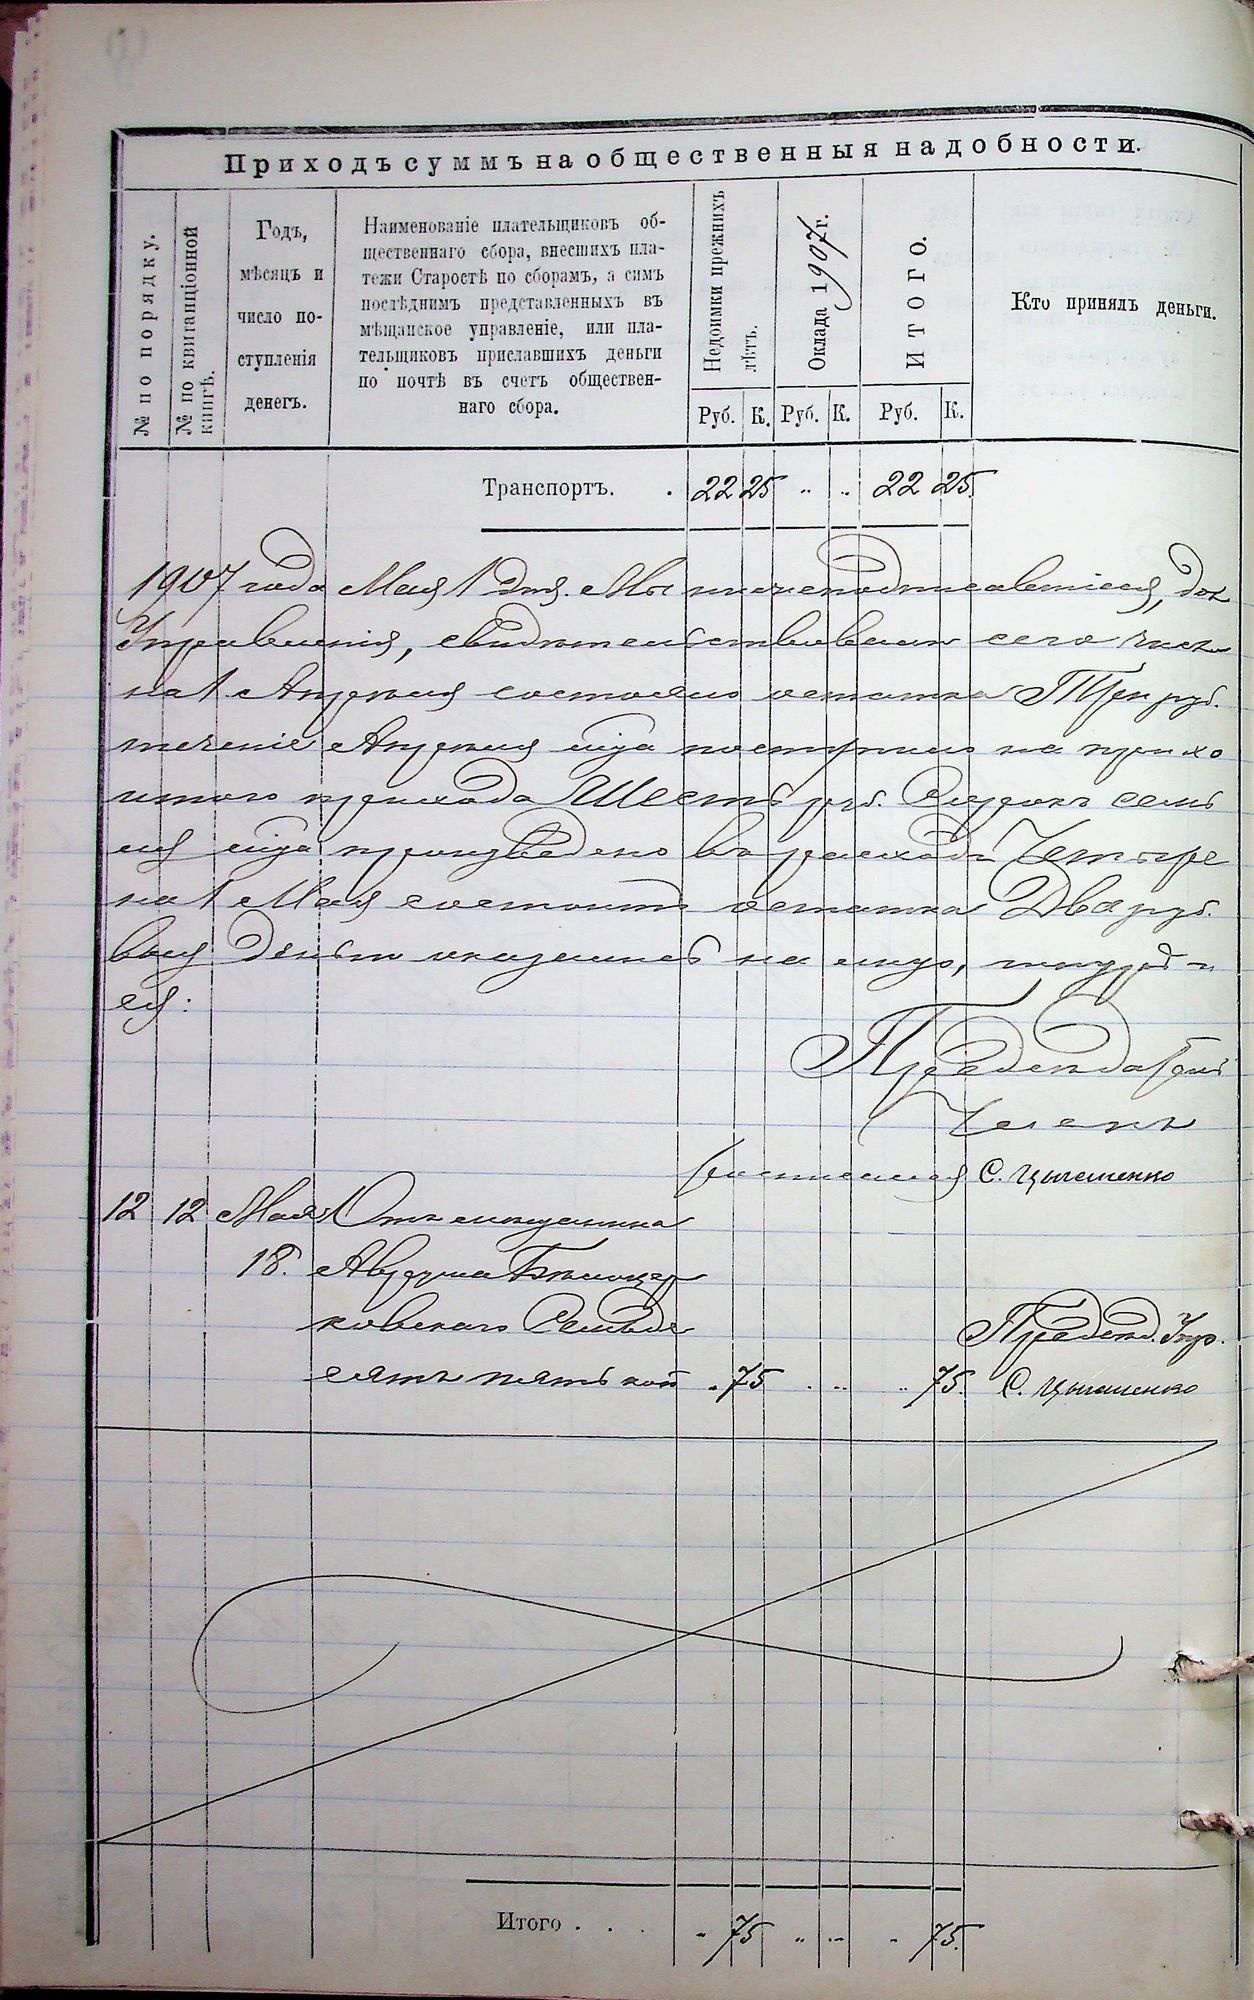 Приходъ суммъ на общественныя надобности.
№ по порядку.
№ по квитанціонной
книгѣ.
Годъ,
мѣсяцъ и
число по-
ступленія
денегъ.
Наименованіе плательщиковъ об-
щественнаго сбора, внесшихъ пла-
тежи Старостѣ по сборамъ, а симъ
послѣднимъ представленныхъ въ
мѣщанское управленіе, или пла-
тельщиковъ приславшихъ деньги
по почтѣ въ счетъ обществен-
наго сбора.
Недоимки прежнихъ
лѣтъ.
Оклада 1907 г.
Итого.
Кто принялъ деньги.
Руб. К. Руб. К. Руб. К.
Транспортъ. . 22 25 " " 22 25.
1907 года Мая 1 дня. Мы нижеподписавшіеся,
Управленія, свидѣтельствовали сего
на 1 Апрѣля состояло остатка Три руб.
теченіе Апрѣля м-ца поступило на прихо
итого прихода Шесть руб. Сорокъ семь
ля м-ца произведено въ расходъ Четыре
на 1 Мая состоитъ остатка Два руб.
выя деньги оказались на лицо,
ся:
Предсѣдатель
Членъ
С. Цыгаменко
12 12 Мая Отъ мѣщанина
18. Аврума Бѣлоцер
ковскаго Семьде
сятъ пять коп . 75 . " " 75.
Предсѣд. Упр.
С. Цыгаменко
Итого . . . " 75 " " " 75.